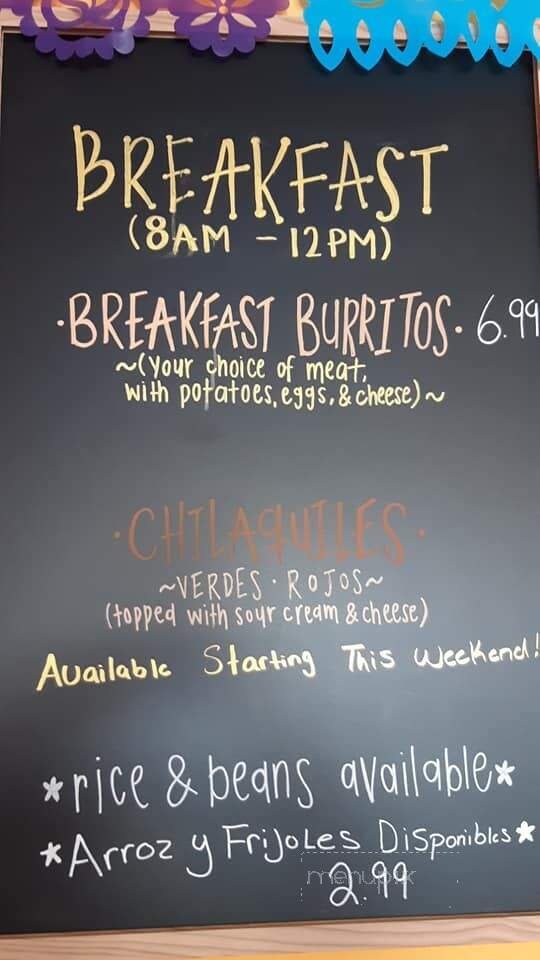 BREAKFAST
(8AM - 12PM)
·BREAKFAST BURRITOS· 6.99
~(your choice of meat,
with potatoes, eggs, & cheese)~
·CHILAQUILES·
~VERDES · ROJOS~
(topped with sour cream & cheese)
Available Starting This Weekend!
*rice & beans available*
*Arroz y Frijoles Disponibles*
2.99
menupix